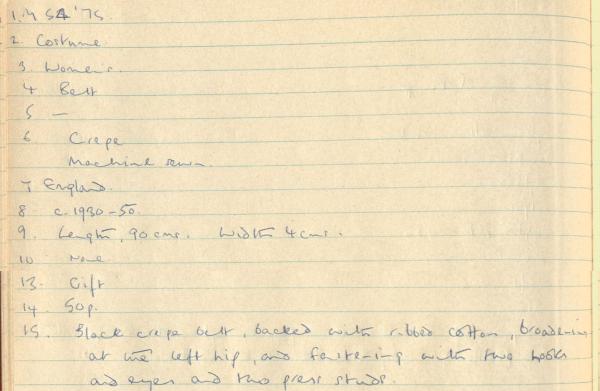 1. M 54 '75
2. Costume
3. Women's.
4 Belt
5 —
6 Crepe
Machine sewn.
7 England.
8 c. 1930-50.
9. Length, 90 cms. Width 4 cms.
10 None
13. Gift
14. 50p.
15. Black crepe belt, backed with ribbed cotton, broadening
at the left hip, and fastening with two hooks
and eyes and two press studs.